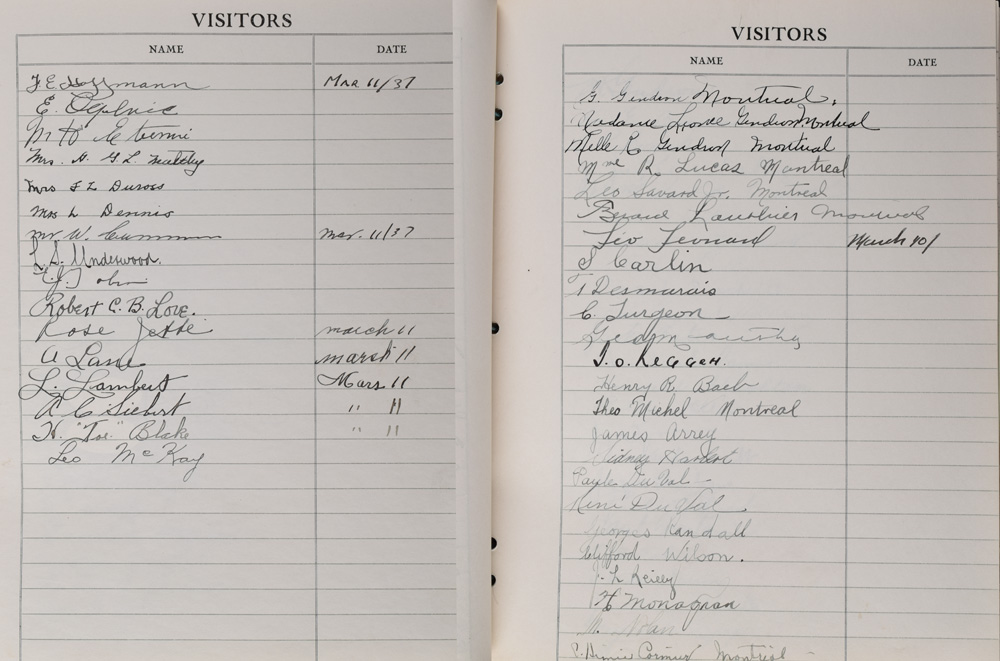 VISITORS
NAME DATE
Mar 11/37
E. Ogilvie
M H
Mrs. H. G. L.
Mrs F L Duross
Mrs L Dennis
Mr W. Mar. 11/37
L. S. Underwood.
Robert C. B. Love.
Rose Jette march 11
A Lane marsh 11
L. Lambert Mars 11
A C Siebert " 11
H. "Toe" Blake " 11
Leo McKay
VISITORS
NAME DATE
G. Gendron Montreal.
Madame Gendron Montreal
Mlle L Gendron Montreal
Mme R. Lucas Montreal
Leo Savard Jr. Montreal
Gauthier Montreal
Léo Léonard March 10/
S Carlin
T Desmarais
C. Turgeon
T. O. Leggett.
Henry R. Bach
Theo Michel Montreal
James Arrey
Sidney
Du Val
René Du Val
Georges Randall
Clifford Wilson.
J. L Reilly
H Monaghan
M.
Cormier Montréal